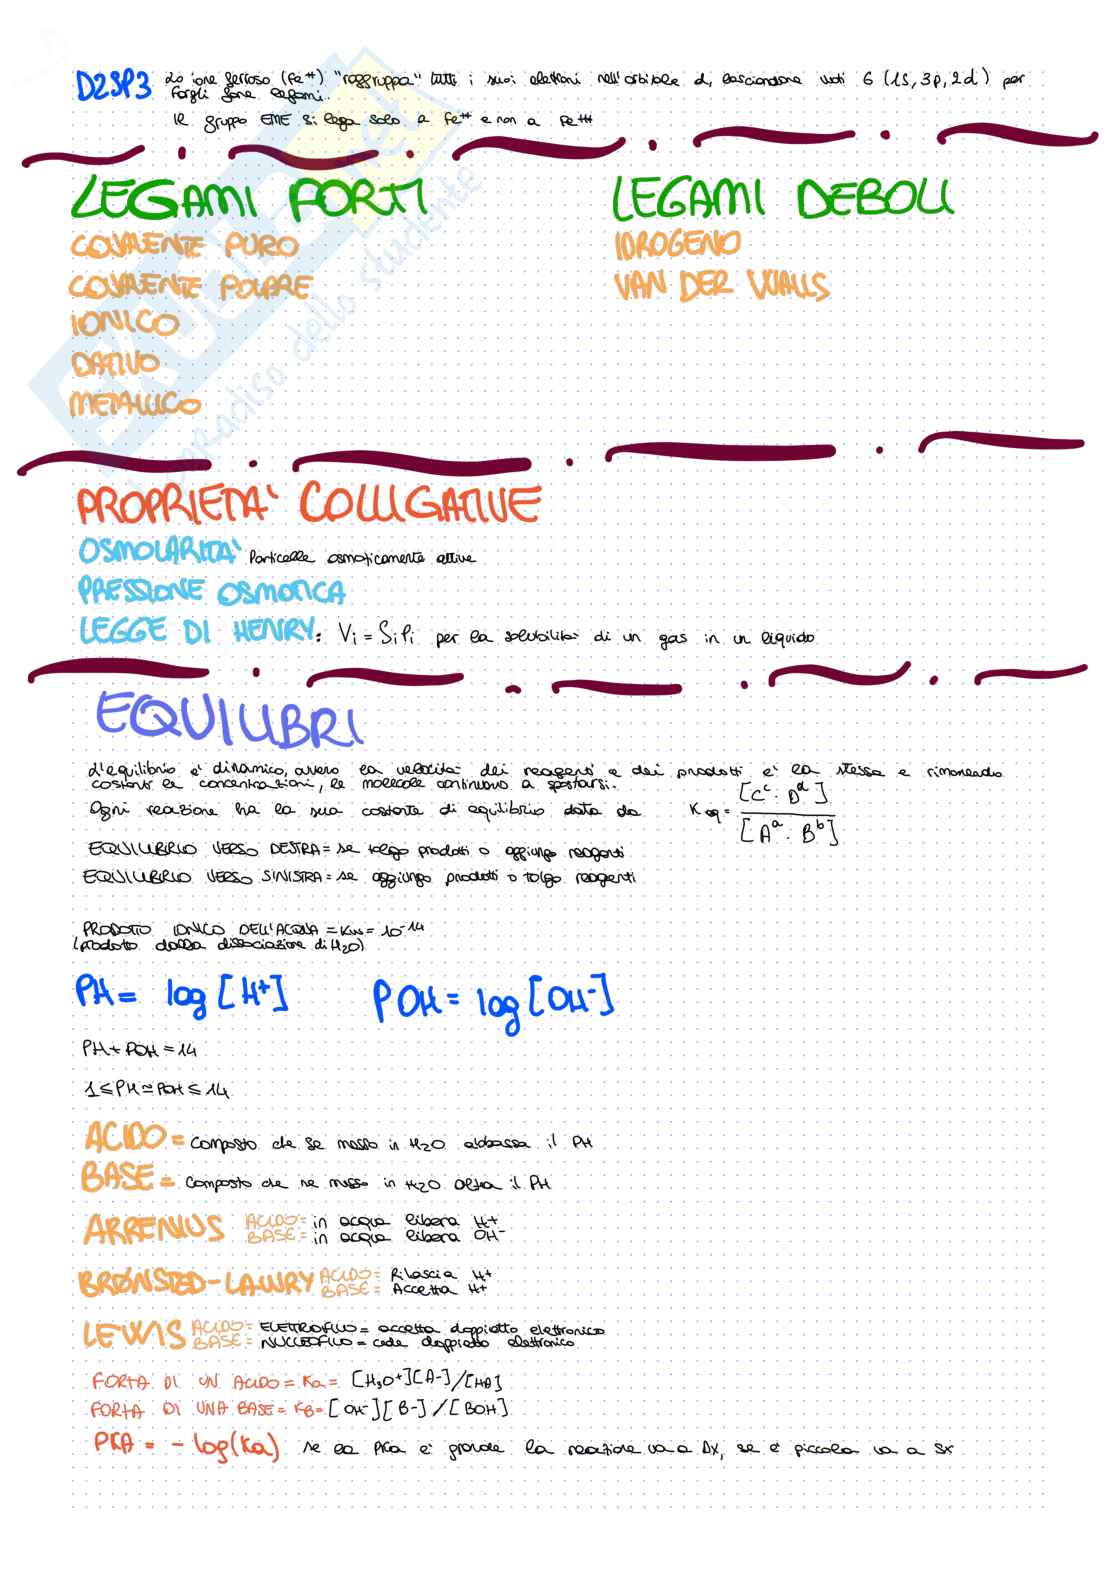 D2SP3 Lo ione ferroso (Fe++) "raggruppa" tutti i suoi elettroni nell'orbitale d, lasciandone vuoti 6 (1S, 3p, 2d) per
fargli fare legami.
Il gruppo EME si lega solo a Fe++ e non a Fe+++
LEGAMI FORTI
COVALENTE PURO
COVALENTE POLARE
IONICO
DATIVO
METALLICO
LEGAMI DEBOLI
IDROGENO
VAN DER WALLS
PROPRIETA' COLLIGATIVE
OSMOLARITA' Particelle osmoticamente attive
PRESSIONE OSMOTICA
LEGGE DI HENRY: Vi = SiPi per la solubilità di un gas in un liquido
EQUILIBRI
L'equilibrio è dinamico, ovvero la velocità dei reagenti e dei prodotti è la stessa e rimanendo
costanti le concentrazioni, le molecole continuano a spostarsi.
Ogni reazione ha la sua costante di equilibrio data da Keq = [C^c · D^d] / [A^a · B^b]
EQUILIBRIO VERSO DESTRA = se tolgo prodotti o aggiungo reagenti
EQUILIBRIO VERSO SINISTRA = se aggiungo prodotti o tolgo reagenti
PRODOTTO IONICO DELL'ACQUA = Kw = 10^-14
(prodotto dalla dissociazione di H2O)
PH = log [H+] POH = log [OH-]
PH + POH = 14
1 ≤ PH ≃ POH ≤ 14
ACIDO = Composto che se messo in H2O abbassa il PH
BASE = Composto che se messo in H2O alza il PH
ARRENIUS ACIDO = in acqua libera H+
BASE = in acqua libera OH-
BRØNSTED-LAWRY ACIDO = Rilascia H+
BASE = Accetta H+
LEWIS ACIDO = ELETTROFILO = accetta doppietto elettronico
BASE = NUCLEOFILO = cede doppietto elettronico
FORZA DI UN ACIDO = Ka = [H3O+][A-]/[HA]
FORZA DI UNA BASE = KB = [OH-][B-]/[BOH]
PKA = - log(Ka) se la PKa è grande la reazione va a DX, se è piccola va a SX
SKUOLA.net
il paradiso dello studente